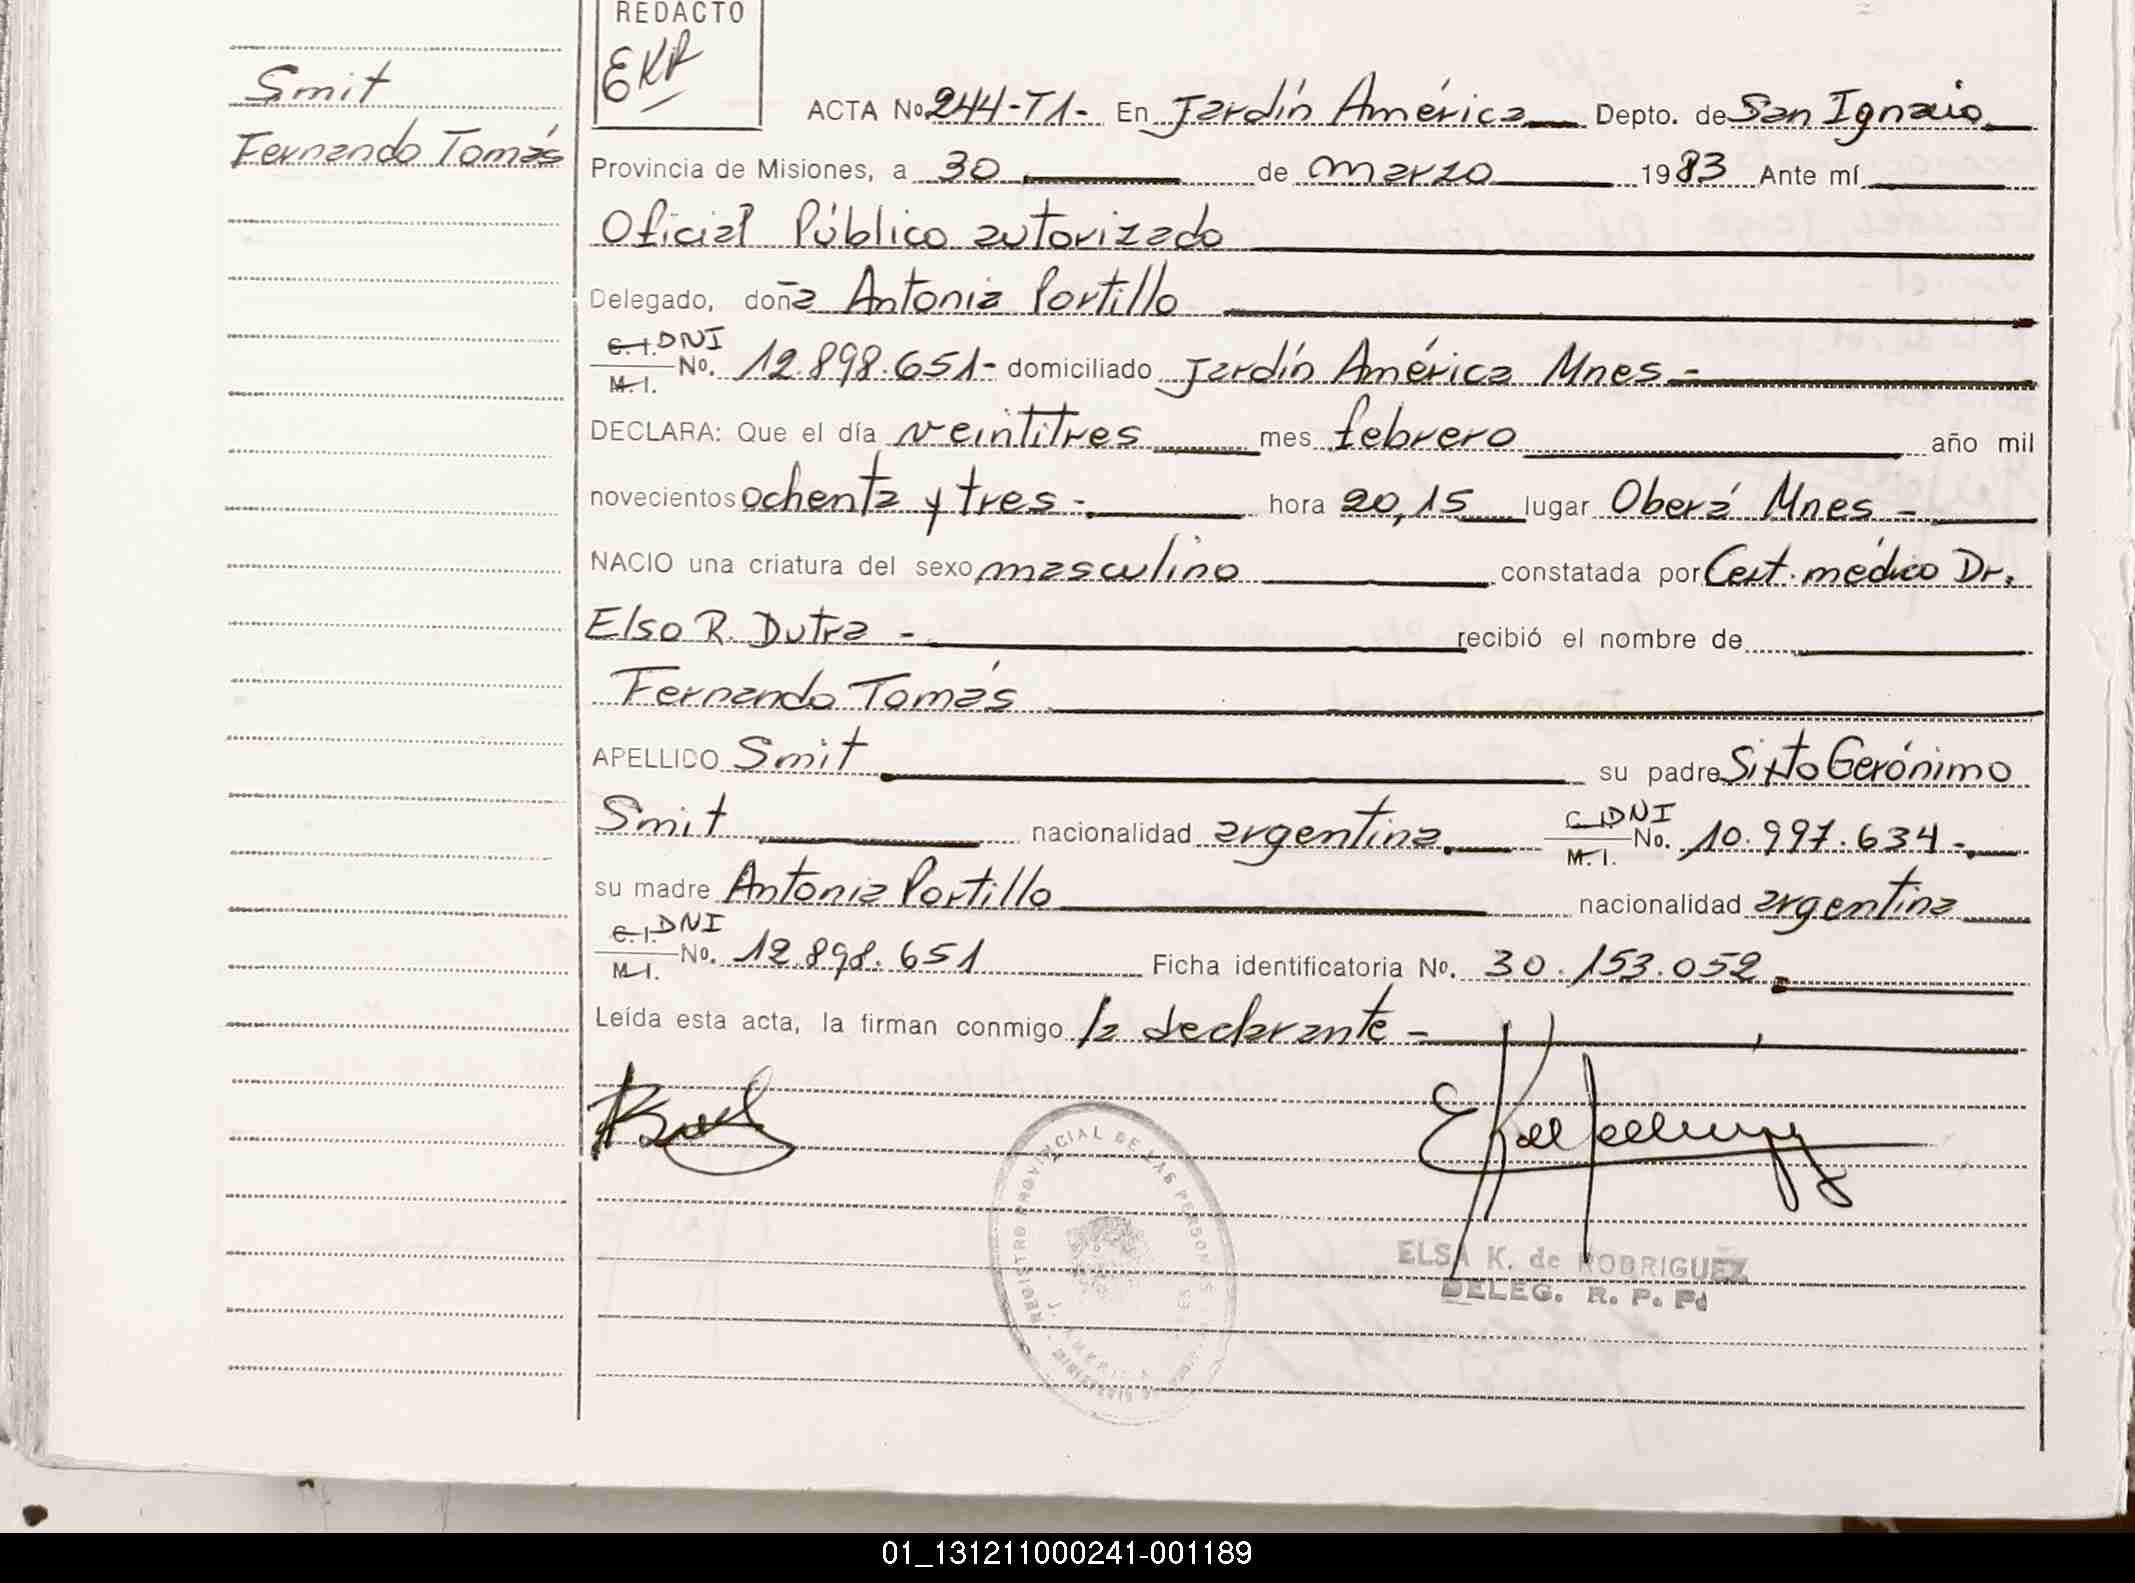 REDACTO
EKR
Smit
Fernando Tomás
ACTA No. 244-T1- En Jardín América Depto. de San Ignacio
Provincia de Misiones, a 30 de marzo 1983 Ante mí
Oficial Público autorizado
Delegado, doña Antonia Portillo
C.I. DNI
M.I. No. 12.898.651- domiciliado Jardín América Mnes-
DECLARA: Que el día veintitres mes febrero año mil
novecientos ochenta y tres- hora 20,15 lugar Oberá Mnes-
NACIO una criatura del sexo masculino constatada por Cert. médico Dr.
Elso R. Dutra - recibió el nombre de
Fernando Tomás
APELLIDO Smit su padre Sixto Gerónimo
Smit nacionalidad argentina. C.I. DNI
M.I. No. 10.997.634-
su madre Antonia Portillo nacionalidad argentina
C.I. DNI
M.I. No. 12.898.651 Ficha identificatoria No. 30.153.052
Leída esta acta, la firman conmigo la declarante -
REGISTRO PROVINCIAL DE LAS PERSONAS
ELSA K. de RODRIGUEZ
DELEG. R. P. Pd
01_131211000241-001189